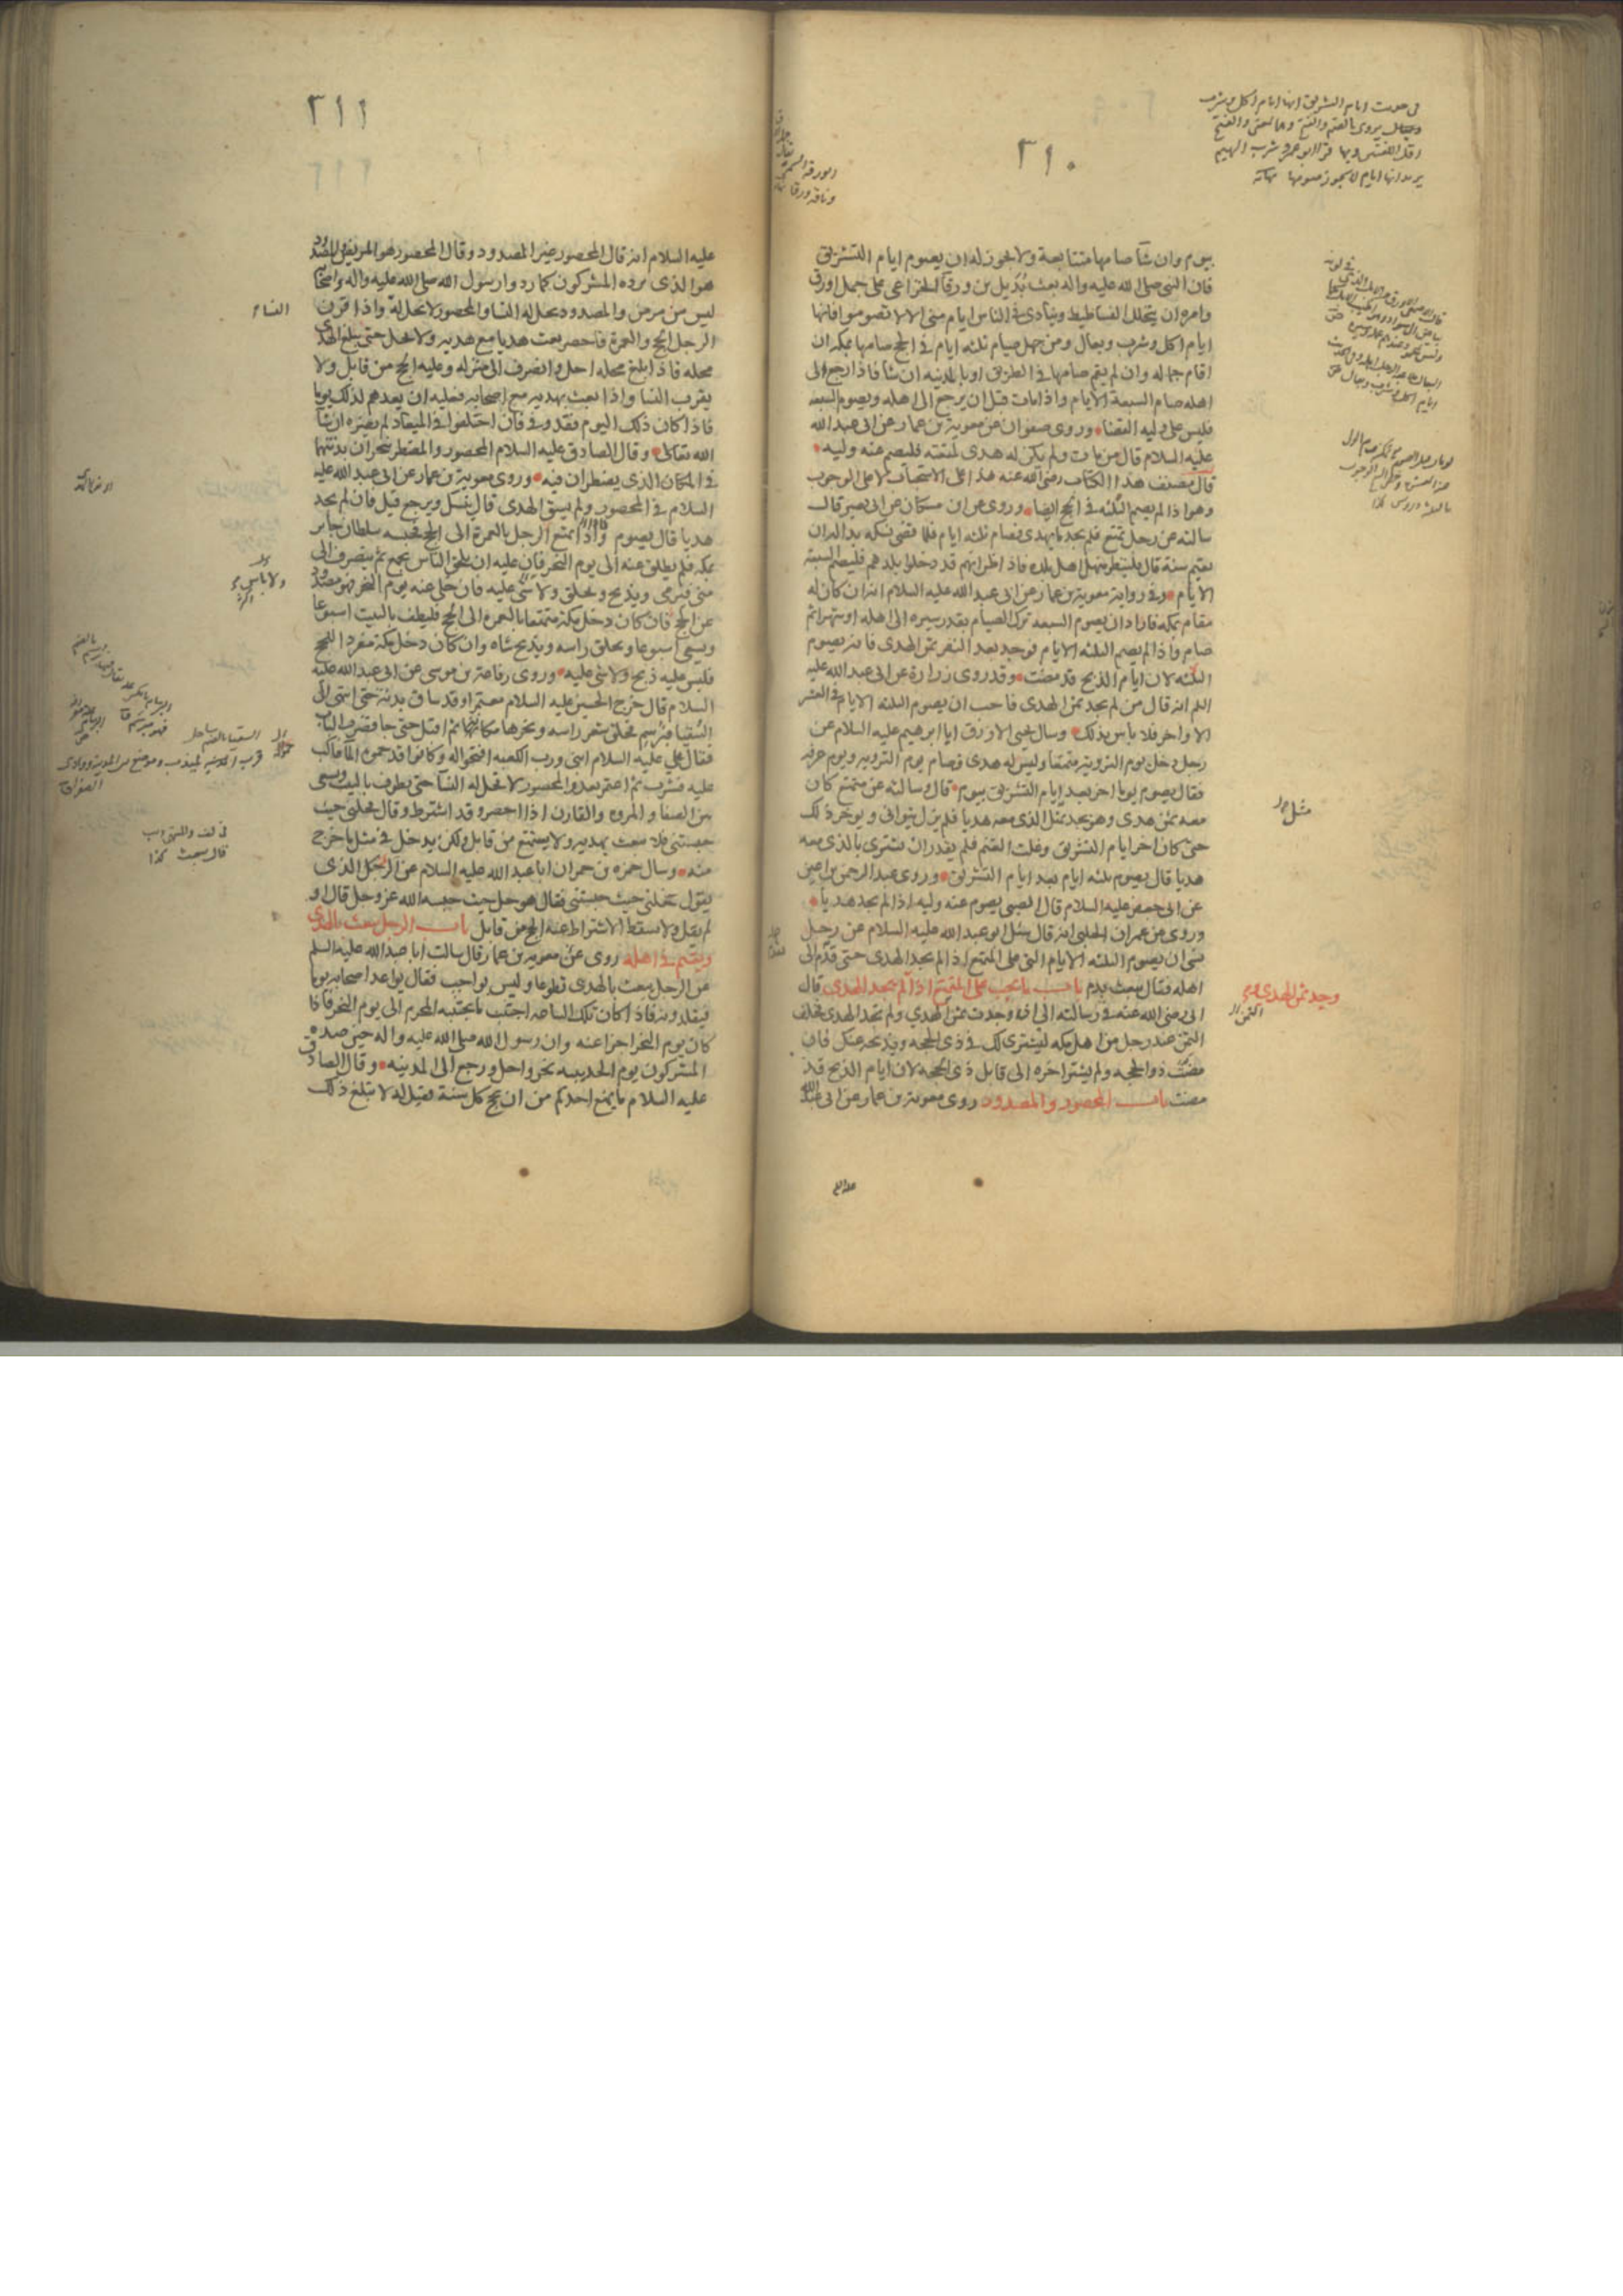 ٣١٠
بيوم وان شآ صامها متتابعة ولا يجوز له ان يصوم ايام التشريق
فان النبى صلى الله عليه واله بعث بُدَيل بن ورقآ الخزاعى على جمل اورق
وامره ان يتخلل الفساطيط وينادى فى الناس ايام منى الا لا تصوموا فانها
ايام اكل وشرب وبعال ومن جهل صيام ثلثه ايام فى الحج صامها بمكه ان
اقام جماله وان لم يقم صامها فى الطريق او بالمدينه ان شآ فاذا رجع الى
اهله صام السبعة الايام واذا مات قبل ان يرجع الى اهله ويصوم السبعه
فليس على وليه القضا وروى صفوان عن معوية بن عمار عن ابى عبد الله
عليه السلام قال من مات ولم يكن له هدى لمتعته فليصم عنه وليه
قال مصنف هذا الكتاب رضى الله عنه هذا على الاستحباب لا على الوجوب
وهو اذا لم يصم الثلثه فى الحج ايضا وروى عن ابن مسكان عن ابى بصير قال
سالته عن رجل تمتع فلم يجد ما يهدى فصام ثلثه ايام فلما قضى نسكه بدا له ان
يقيم سنة قال فلينتظر منهل اهل بلده فاذا ظن انهم قد دخلوا بلدهم فليصم السبعة
الايام وفى رواية معوية بن عمار عن ابى عبد الله عليه السلام انه ان كان له
مقام بمكه فاراد ان يصوم السبعه ترك الصيام بقدر سيره الى اهله او شهرا ثم
صام واذا لم يصم الثلثه الايام فوجد بعد النفر ثمن الهدى فانه يصوم
الثلثه لان ايام الذبح قد مضت وقد روى زرارة عن ابى عبد الله عليه
السلم انه قال من لم يجد ثمن الهدى فاحب ان يصوم الثلثه الايام فى العشر
الاواخر فلا باس بذلك وسال يحيى الازرق ابا ابرهيم عليه السلام عن
رجل دخل يوم التروية متمتعا وليس له هدى فصام يوم الترويه ويوم عرفه
فقال يصوم يوما اخر بعد ايام التشريق بيوم قال وسالته عن متمتع كان
معه ثمن هدى وهو يجد بمثل الذى معه هديا فلم يزل يتوانى ويوخر ذلك
حتى كان اخر ايام التشريق وغلت الغنم فلم يقدر ان يشترى بالذى معه
هديا قال يصوم ثلثه ايام بعد ايام التشريق وروى عبد الرحمن بن اعين
عن ابى جعفر عليه السلام قال الصبى يصوم عنه وليه اذا لم يجد هديا
وروى عن عمران الحلبى انه قال سئل ابو عبد الله عليه السلام عن رجل
نسى ان يصوم الثلثه الايام التى على المتمتع اذا لم يجد الهدى حتى قدم الى
اهله فقال يبعث بدم باب ما يجب على المتمتع اذا لم يجد الهدى قال
ابى رضى الله عنه فى رسالته الى اذا وجدت ثمن الهدى ولم تجد الهدى فخلف
الثمن عند رجل من اهل مكه ليشترى لك فى ذى الحجه ويذبحه عنك فان
مضت ذو الحجه ولم يشتر اخره الى قابل ذى الحجه لان ايام الذبح قد
مضت باب المحصور والمصدود روى معوية بن عمار عن ابى عبد الله
فى حديث ايام التشريق انها ايام اكل وشرب
مثل
وجد ثمن الهدى
٣١١
عليه السلام انه قال المحصور غير المصدود وقال المحصور هو المريض والمصدود
هو الذى يرده المشركون كما ردوا رسول الله صلى الله عليه واله واصحابه
ليس من مرض والمصدود يحل له النسا والمحصور لا يحل له واذا قرن
الرجل الحج والعمرة فاحصر بعث هديا مع هديه ولا يحل حتى يبلغ الهدى
محله فاذا بلغ محله احل وانصرف الى منزله وعليه الحج من قابل ولا
يقرب النسا واذا بعث بهديه مع اصحابه فعليه ان يعدهم لذلك يوما
فاذا كان ذلك اليوم فقد وفى فان اختلفوا فى الميعاد لم يضره ان شآ
الله تعالى وقال الصادق عليه السلام المحصور والمضطر ينحران بدنتهما
فى المكان الذى يضطران فيه وروى معوية بن عمار عن ابى عبد الله عليه
السلام فى المحصور ولم يسق الهدى قال ينسك ويرجع قيل فان لم يجد
هديا قال يصوم واذا تمتع الرجل بالعمرة الى الحج فحبسه سلطان جاير
بمكه فلم يطلق عنه الى يوم النحر فان عليه ان يلحق الناس بجمع ثم ينصرف الى
منى فيرمى ويذبح ويحلق ولا شى عليه فان خلى عنه يوم النحر فهو مصدود
عن الحج فان كان دخل مكة متمتعا بالعمرة الى الحج فليطف بالبيت اسبوعا
ويسعى اسبوعا ويحلق راسه ويذبح شاه وان كان دخل مكة مفردا للحج
فليس عليه ذبح ولا شى عليه وروى رفاعة بن موسى عن ابى عبد الله عليه
السلام قال خرج الحسين عليه السلام معتمرا وقد ساق بدنة حتى انتهى الى
السقيا فبرسم فحلق شعر راسه ونحرها مكانها ثم اقبل حتى جا فضرب الباب
فقال على عليه السلام ابنى ورب الكعبه افتحوا له وكانوا قد حموه المآ فاكب
عليه فشرب ثم اعتمر بعد والمحصور لا تحل له النسآ حتى يطوف بالبيت ويسعى
بين الصفا والمروه والقارن اذا احصر وقد اشترط وقال فحلنى حيث
حبستنى فلا يبعث بهديه ولا يستمتع من قابل ولكن يدخل فى مثل ما خرج
منه وسال حمزه بن حمران ابا عبد الله عليه السلام عن الرجل الذى
يقول حلنى حيث حبستنى فقال هو حل حيث حبسه الله عز وجل قال او
لم يقل ولا يسقط الاشتراط عنه الحج من قابل باب الرجل يبعث بالهدى
ويقيم فى اهله روى عن معوية بن عمار قال سالت ابا عبد الله عليه السلم
عن الرجل يبعث بالهدى تطوعا وليس بواجب فقال يواعد اصحابه يوما
فيقلدونه فاذا كان تلك الساعه اجتنب ما يجتنبه المحرم الى يوم النحر فاذا
كان يوم النحر اجزا عنه وان رسول الله صلى الله عليه واله حين صده
المشركون يوم الحديبيه نحر واحل ورجع الى المدينه وقال الصادق
عليه السلام ما يمنع احدكم من ان يحج كل سنة فقيل له لا تبلغ ذلك
النساء